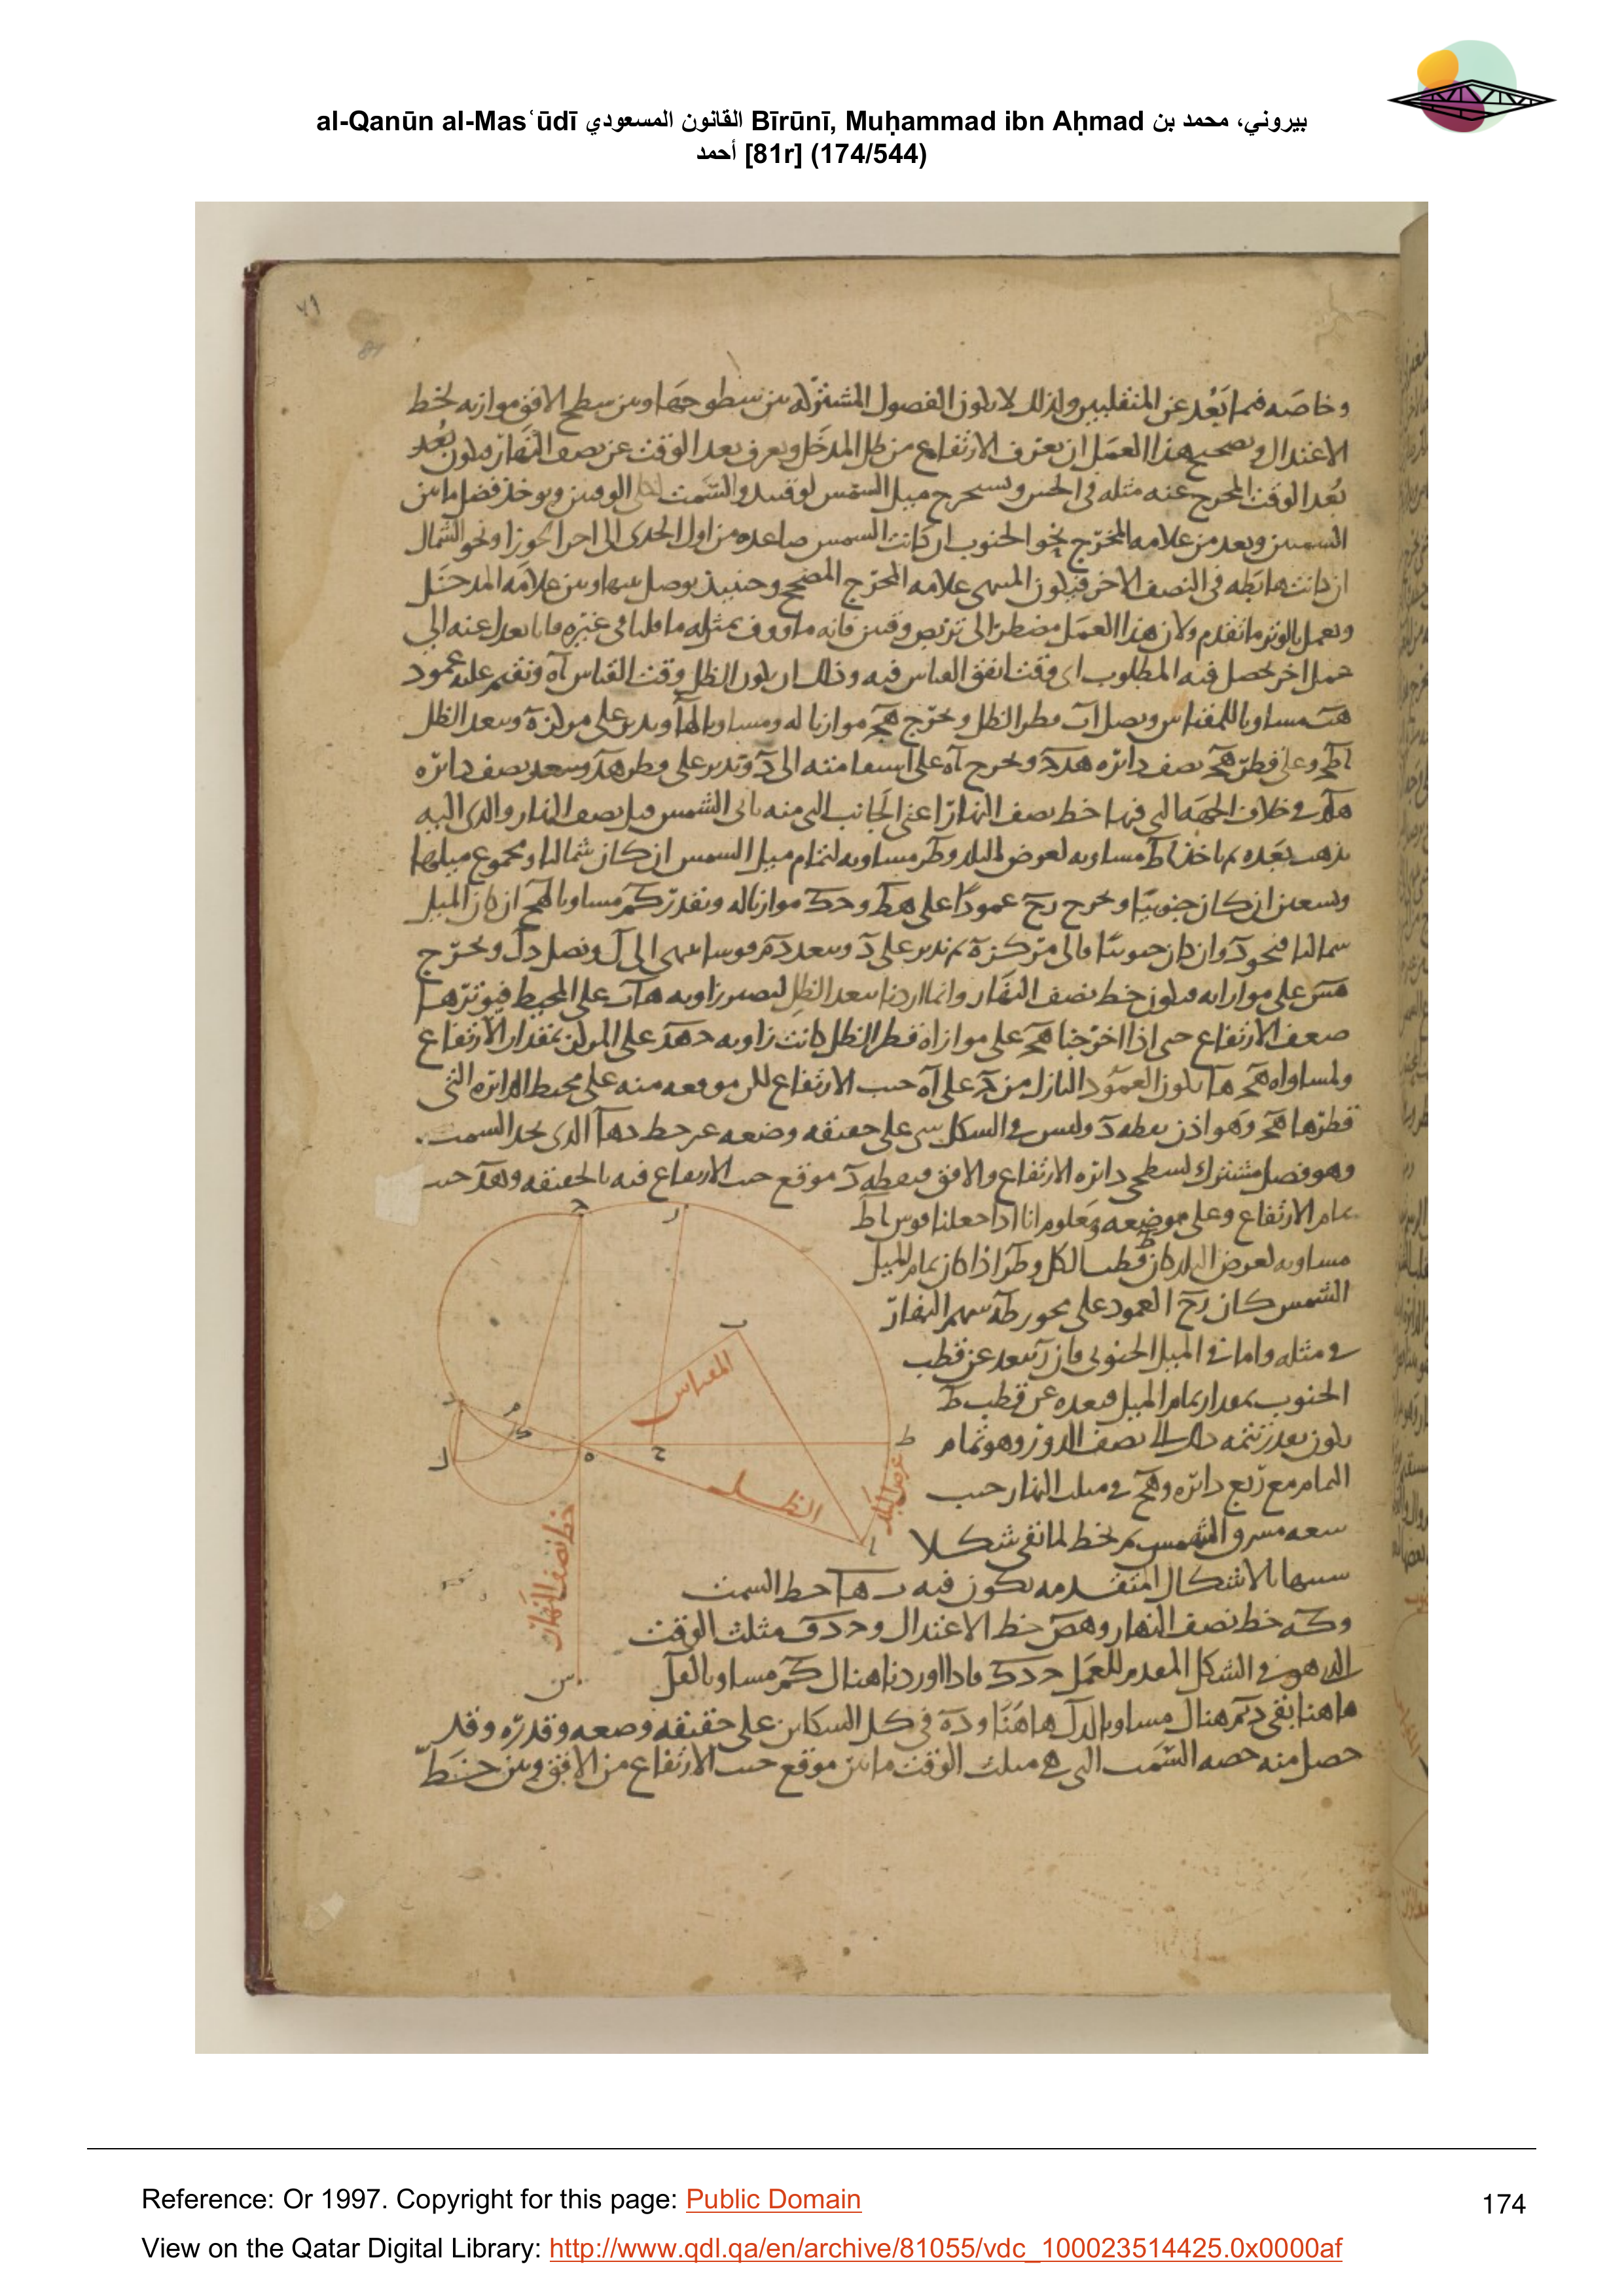 al-Qanūn al-Masʿūdī القانون المسعودي Bīrūnī, Muḥammad ibn Aḥmad بيروني، محمد بن
أحمد [81r] (174/544)
٧٩
81
وخاصه فيما بعد عن المنقلبين ولذلك لا يكون الفصول المشتركه بين سطوحها وبين سطح الافق موازيه لخط
الاعتدال وتصحيح هذا العمل ان يعرف الارتفاع من ظل المدخل ويعرف بعد الوقت عن نصف النهار فيكون بعد
بعد الوقت المخرج عنه مثله في الحس ويستخرج ميل الشمس لوقتيه والسمت الوقتين ويوخذ فضل ما بين
السمتين وبعد من علامه المخرج نحو الجنوب ان كانت الشمس صاعده من اول الجدي الى اخر الجوزا ونحو الشمال
ان كانت هابطه في النصف الاخر فيكون المنتهى علامه المخرج المصحح وحينئذ يوصل بينها وبين علامه المدخل
ويعمل بالوتر ما تقدم ولان هذا العمل مضطر الى تربص وقتين فانه ماووف بمثله ما قلنا في غيره فانا نعدل عنه الى
عمل اخر يحصل فيه المطلوب اي وقت اتفق القياس فيه وذلك ان يكون الظل وقت القياس آه ونقيم عليه عمود
هب مساويا للمقياس ونصل آب قطر الظل ونخرج هج موازيا له ومساويا لها وندير على مركز ه وببعد الظل
اطج وعلى قطر هج نصف دائره هدج ونخرج آه على استقامته الى د وندير على قطر هد وببعد نصف دائره
في خلاف الجهه التي فيها خط نصف النهار اعني الجانب التي منه ياتي الشمس قبل نصف النهار والذي اليه
يذهب بعده ثم ناخذ اط مساويه لعرض البلد وطر مساويه لتمام ميل الشمس ان كان شماليا ومجموع ميلها
وتسعين ان كان جنوبيا ونخرج رح عمودا على هط وحك موازيا له ونقدر كم مساويا لهح ان كان الميل
شماليا فنحو د وان كان جنوبيا فالى مركز ه ثم ندير على د وببعد دم قوسا ينتهى الى ل ونصل دل ونخرج
هس على موازاته فيكون خط نصف النهار وانما اردنا ببعد الظل ليصير زاويه هاب على المحيط فيوترها
ضعف الارتفاع حتى اذا اخرجنا هج على موازاه قطر الظل كانت زاويه جهد على المركز بمقدار الارتفاع
ولمساواه هج ها يكون العمود النازل من ج على آه جيب الارتفاع لكن موقعه منه على محيط الدائره التي
قطرها هج وهو اذن نقطه د وليس في الشكل شي على حقيقه وضعه غير خط دها الذي يحد السمت
وهو فصل مشترك لسطحي دائره الارتفاع والافق فنقطه د موقع جيب الارتفاع فيه بالحقيقه وهد جيب
تمام الارتفاع وعلى موضعه ومعلوم انا اذا جعلنا قوس اط
مساويه لعرض البلد كان ط قطب الكل وطر اذا كان تمام لميل
الشمس كان رح العمود على محور طه سهم النهار
في مثله واما في الميل الجنوبي فان ر يبعد عن قطب
الجنوب بمقدار تمام الميل فبعده عن قطب ط
يكون بعد تتمه ذلك الى نصف الدور وهو تمام
التمام مع ربع دائره وهح في مثلث النهار جيب
سعه مشرق الشمس ثم نخط لما نقى شكلا
شبيها بالاشكال المتقدمه يكون فيه دها خط السمت
وكه خط نصف النهار وهص خط الاعتدال وحدق مثلث الوقت
الذي هو في الشكل المقدم للعمل حدك فاذا اوردنا هنالك كم مساويا لقل
هاهنا بقى دم هنالك مساويا لدل هاهنا وده في كل الشكلين على حقيقه وضعه وقدره وقد
حصل منه حصه السمت التي في مثلث الوقت ما بين موقع جيب الارتفاع من الافق وبين خط
ج
ر
ب
المقياس
د
م
ك
ل
ه
ح
ط
الظل
عرض البلد
ا
خط نصف النهار
س
Reference: Or 1997. Copyright for this page: Public Domain
174
View on the Qatar Digital Library: http://www.qdl.qa/en/archive/81055/vdc_100023514425.0x0000af